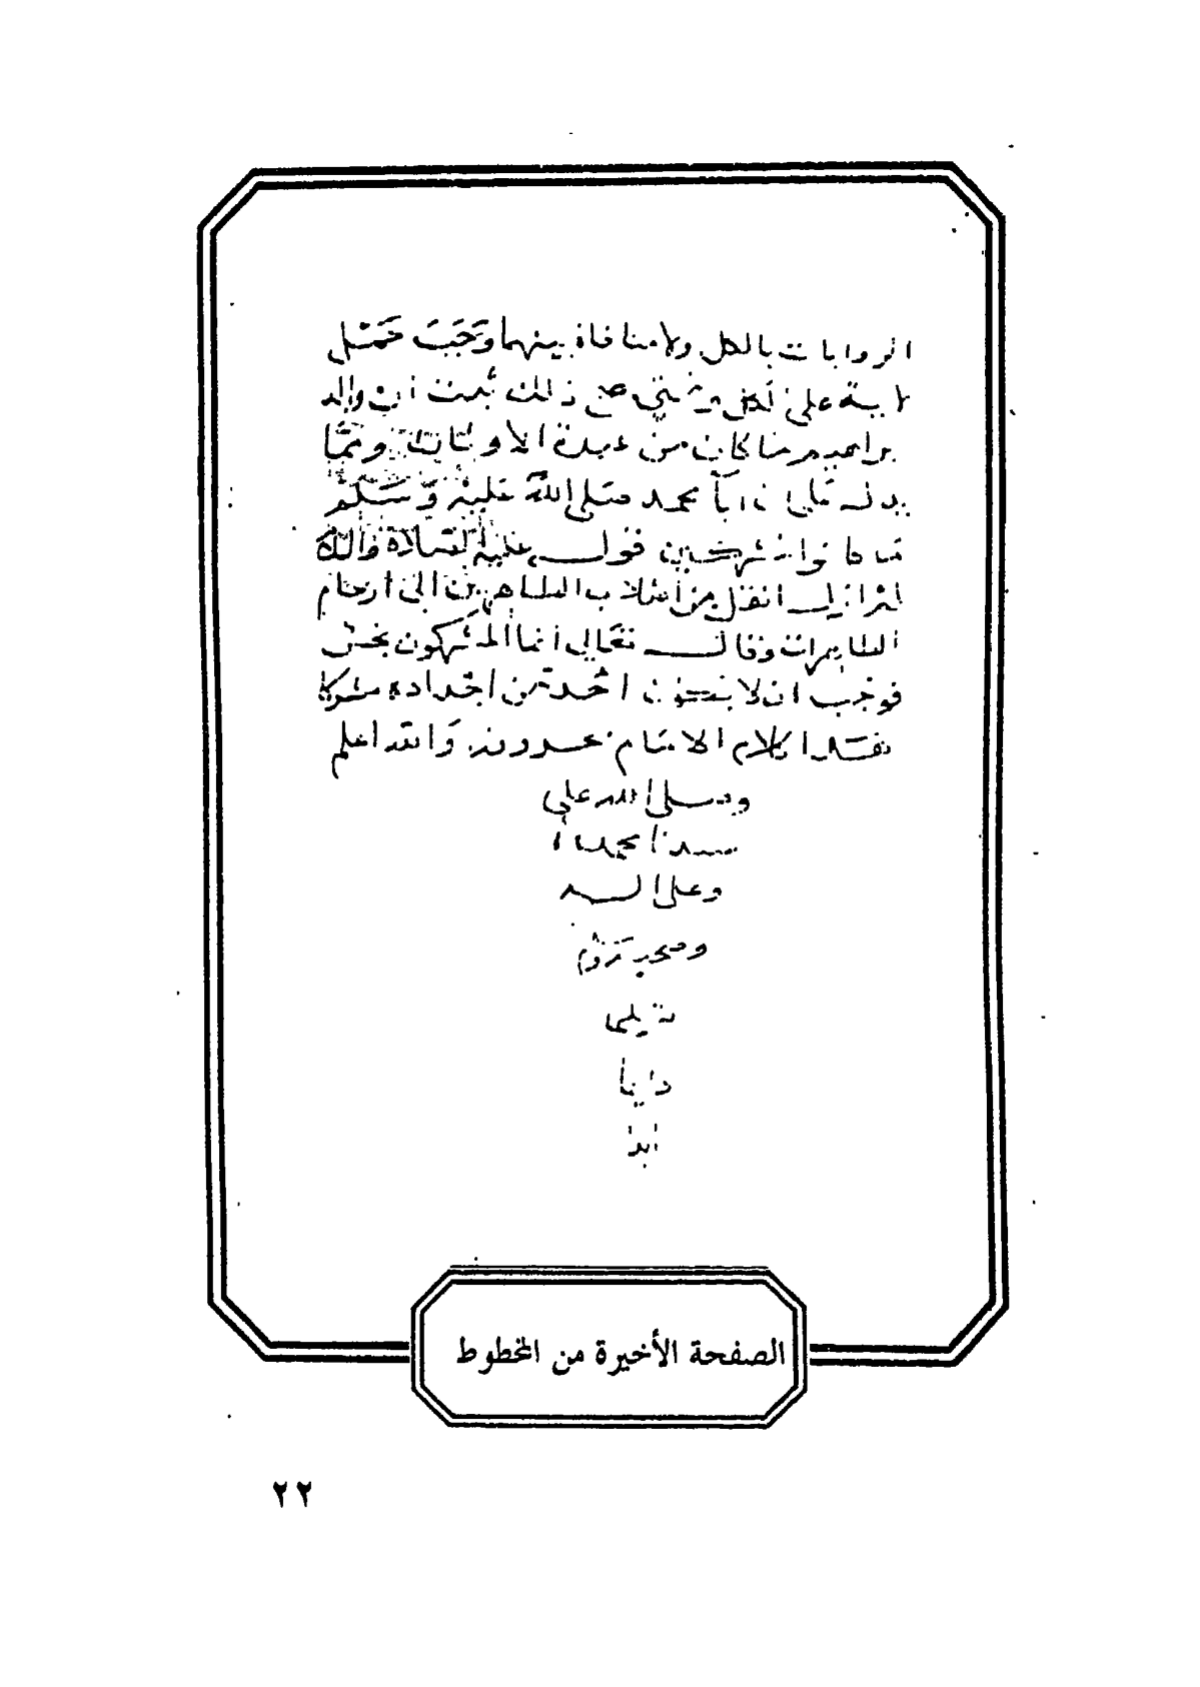 الروايات بالكل ولا منافاة بينهما وَجَبَ حَمْل
الاية على الكل ومتى صح ذلك ثبت ان والد
ابراهيم ما كان من عبدة الاوثان ومما
يدل على ان ابآ محمد صلى اللّه عليه وَسَلم
ما كانوا مشركين قوله عليه الصلاة والسلام
لم ازل انقل من أصلاب الطاهرين الى ارحام
الطاهرات وقال تعَالى انما المشركون نجس
فوجب ان لا يكون احد من اجداده مشركا
هذا كلام الامام بحروفه وَالله اعلم
وصلى الله على
سيدنا محمد
وعلى اله
وصحبه وسلم
تسليما
دايما
ابدا
الصفحة الأخيرة من المخطوط
٢٢